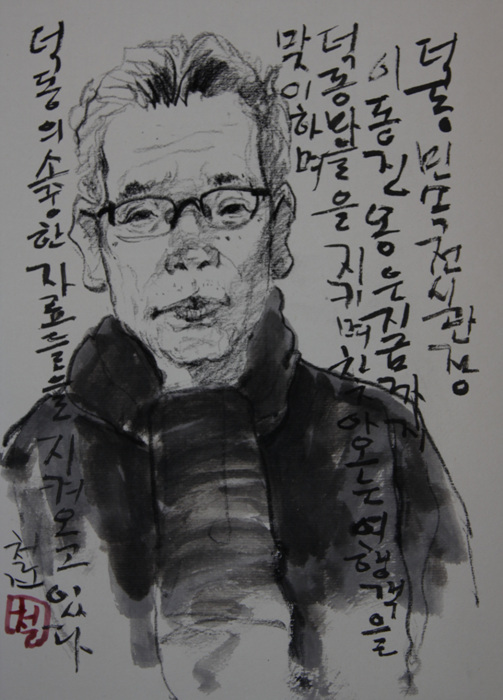 덕동 민속전시관장
이동진 옹은 지금까지
덕동마을을 지키며 찾아오는 여행객을
맞이하며
덕동의 소중한 자료들을 지켜오고 있다
철